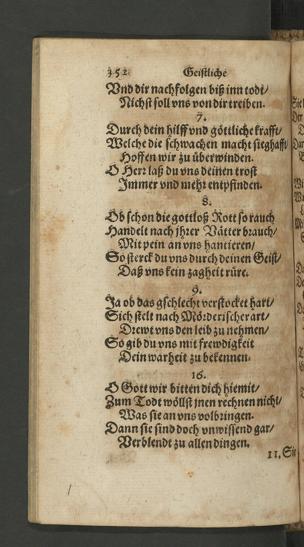 352 Geistliche
Vnd dir nachfolgen biß inn todt/
Nichst soll vns von dir treiben.
7.
Durch dein hilff vnd göttliche krafft/
Welche die schwachen macht sieghafft
Hoffen wir zu überwinden.
O Herr laß du vns deinen trost
Immer vnd mehr entpfinden.
8.
Ob schon die gottloß Rott so rauch
Handelt nach jhrer Vätter brauch/
Mit pein an vns hantieren/
So sterck du vns durch deinen Geist/
Daß vns kein zagheit rüre.
9.
Ja ob das gschlecht verstocket hart/
Sich stelt nach Mörderischer art/
Drewt vns den leib zu nehmen/
So gib du vns mit frewdigkeit
Dein warheit zu bekennen.
16.
O Gott wir bitten dich hiemit/
Zum Todt wöllst jnen rechnen nicht/
Was sie an vns volbringen.
Dann sie sind doch vnwissend gar/
Verblendt zu allen dingen.
11. Sie